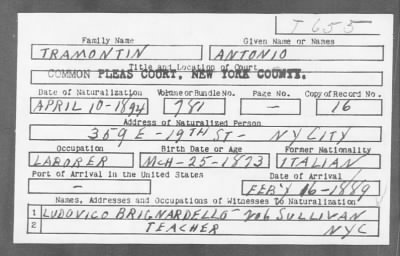 T 655
Family Name Given Name or Names
TRAMONTIN ANTONIO
Title and Location of Court
COMMON PLEAS COURT, NEW YORK COUNTY.
Date of Naturalization Volume or Bundle No. Page No. Copy of Record No.
APRIL 10-1894 781 - 16
Address of Naturalized Person
359 E-19TH ST- NY CITY
Occupation Birth Date or Age Former Nationality
LABORER MCH-25-1873 ITALIAN
Port of Arrival in the United States Date of Arrival
- FEB'Y 16-1889
Names, Addresses and Occupations of Witnesses To Naturalization
1 LUDOVICO BRIGNARDELLO SULLIVAN
2 TEACHER NYC